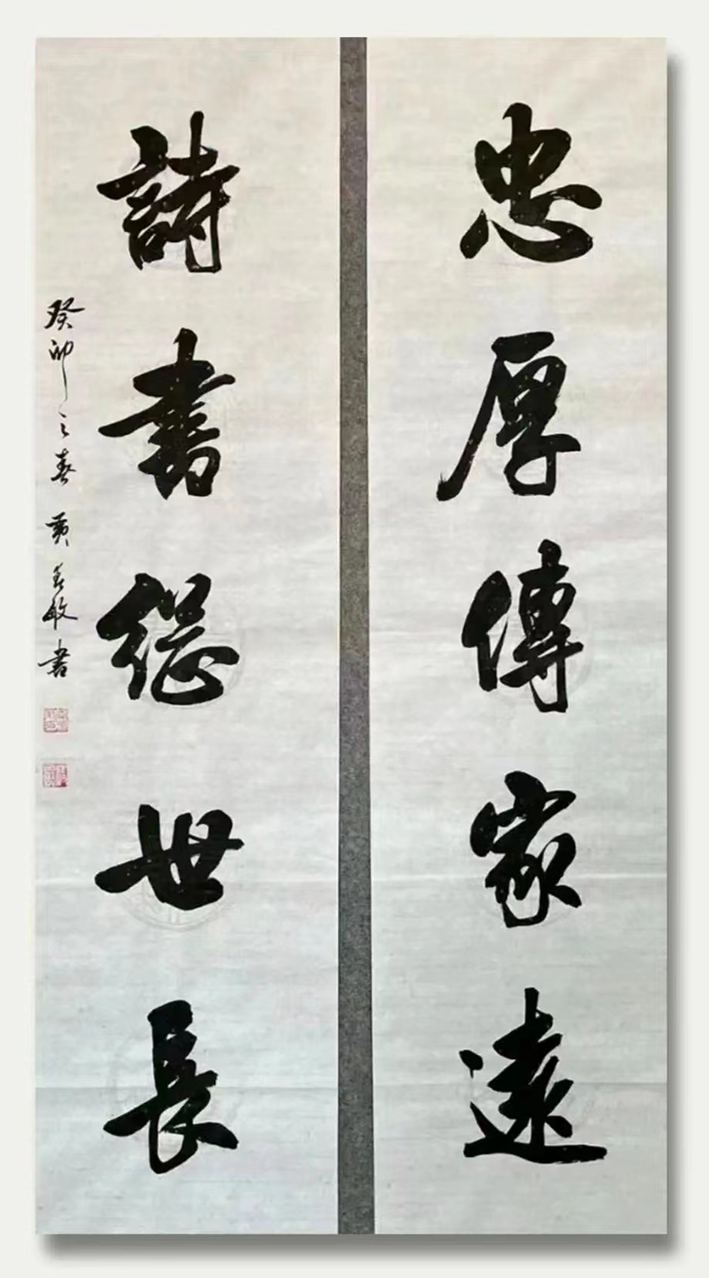 忠厚傳家遠
詩書继世長
癸卯之春 黄 敏书